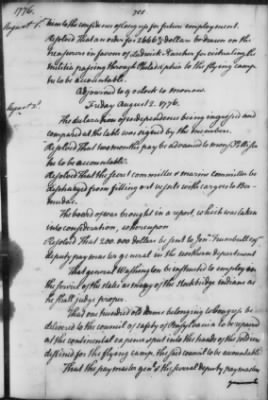 1776.
August 1st
him to the consideration of congress for future employment.
Resolved That an order for 2666 2/3 dollars be drawn on the
treasurers in favour of Ludwick Karcher for victualing the
militia passing through Philadelphia to the flying camp.
he to be accountable.
Adjourned to 9 o'clock to morrow.
August 2d.
Friday August 2. 1776.
The declaration of independence being engrossed and
compared at the table was signed by the members.
Resolved That two months pay be advanced to
he to be accountable.
Resolved That the secret committee & marine committee be
discharged from fitting out vessels with cargoes to Ber-
mudas.
The board of war brought in a report, which was taken
into consideration, whereupon
Resolved That 200.000 dollars be sent to Jon. Trumbull esqr
deputy pay master general in the northern department
That general Washington be instructed to employ in
the service of the states as many of the Stockbridge indians as
he shall judge proper.
That one hundred old tents belonging to Congress be
delivered to the council of safety of Pensylvania to be repaired
at the continental expence & put into the hands of the soldiers
destined for the flying camp. the said council to be accountable
That the pay master genl & the several deputy pay master